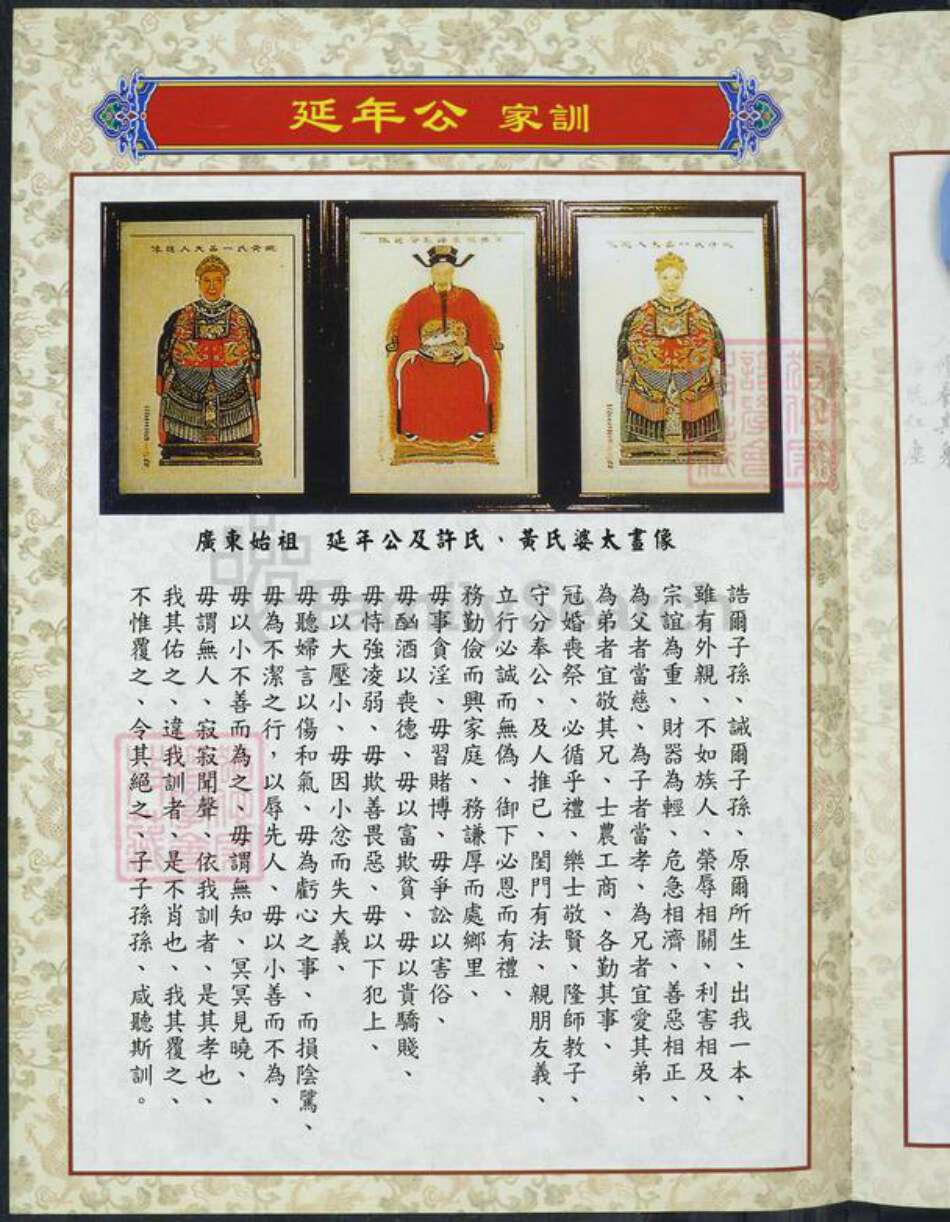 延年公 家訓
廣東始祖 延年公及許氏、黃氏婆太畫像
誥爾子孫、誡爾子孫、原爾所生、出我一本、
雖有外親、不如族人、榮辱相關、利害相及、
宗誼為重、財器為輕、危急相濟、善惡相正、
為父者當慈、為子者當孝、為兄者宜愛其弟、
為弟者宜敬其兄、士農工商、各勤其事、
冠婚喪祭、必循乎禮、樂士敬賢、隆師教子、
守分奉公、及人推已、閨門有法、親朋友義、
立行必誠而無偽、御下必恩而有禮、
務勤儉而興家庭、務謙厚而處鄉里、
毋事貪淫、毋習賭博、毋爭訟以害俗、
毋酗酒以喪德、毋以富欺貧、毋以貴驕賤、
毋恃強凌弱、毋欺善畏惡、毋以下犯上、
毋以大壓小、毋因小忿而失大義、
毋聽婦言以傷和氣、毋為虧心之事、而損陰騭、
毋為不潔之行，以辱先人、毋以小善而不為、
毋以小不善而為之、毋謂無知、冥冥見曉、
毋謂無人、寂寂聞聲、依我訓者、是其孝也、
我其佑之、違我訓者、是不肖也、我其覆之、
不惟覆之、令其絕之、子子孫孫、咸聽斯訓。
FamilySearch